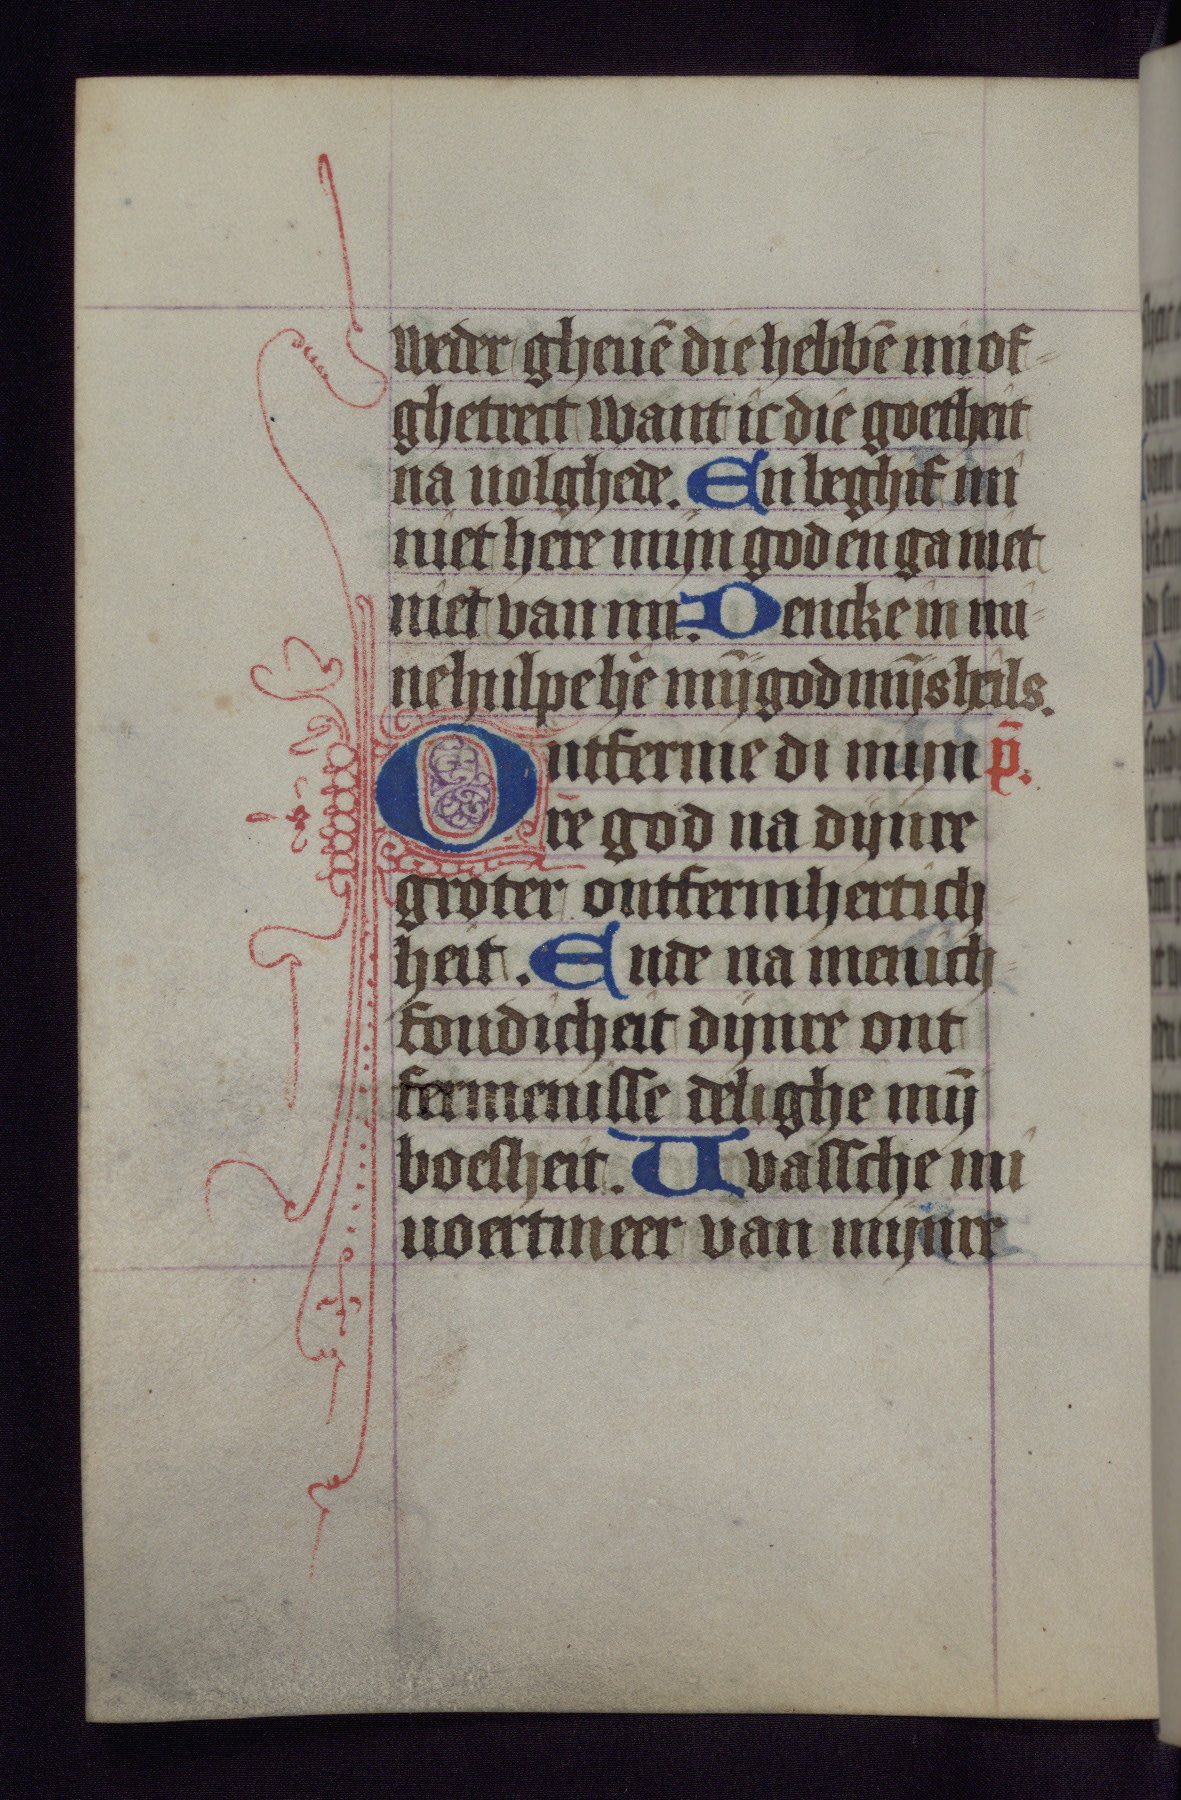 weder gheuē die hebbē mi of-
ghetrect want ic die goetheit
na uolghede. En beghif mi
niet here mijn god en ga niet
niet van mi. Dencke in mi-
ne hulpe hē mij̄ god mij̄s heils.
Ontferme di mijn p̄.
re god na dijnre
groter ontfermhertich
heit. Ende na menich-
foudicheit dijnre ont
fermenisse delighe mij̄
boesheit. Wassche mi
uoertmeer van mijnre